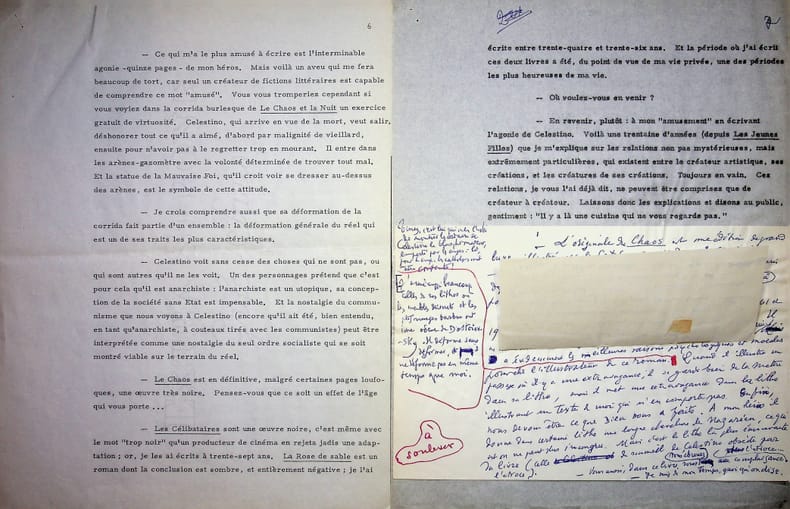 6
— Ce qui m'a le plus amusé à écrire est l'interminable
agonie -quinze pages - de mon héros. Mais voilà un aveu qui me fera
beaucoup de tort, car seul un créateur de fictions littéraires est capable
de comprendre ce mot "amusé". Vous vous tromperiez cependant si
vous voyiez dans la corrida burlesque de Le Chaos et la Nuit un exercice
gratuit de virtuosité. Celestino, qui arrive en vue de la mort, veut salir,
déshonorer tout ce qu'il a aimé, d'abord par malignité de vieillard,
ensuite pour n'avoir pas à le regretter trop en mourant. Il entre dans
les arènes-gazomètre avec la volonté déterminée de trouver tout mal.
Et la statue de la Mauvaise Foi, qu'il croit voir se dresser au-dessus
des arènes, est le symbole de cette attitude.
— Je crois comprendre aussi que sa déformation de la
corrida fait partie d'un ensemble : la déformation générale du réel qui
est un de ses traits les plus caractéristiques.
— Celestino voit sans cesse des choses qui ne sont pas, ou
qui sont autres qu'il ne les voit. Un des personnages prétend que c'est
pour cela qu'il est anarchiste : l'anarchiste est un utopique, sa concep-
tion de la société sans Etat est impensable. Et la nostalgie du commu-
nisme que nous voyons à Celestino (encore qu'il ait été, bien entendu,
en tant qu'anarchiste, à couteaux tirés avec les communistes) peut être
interprétée comme une nostalgie du seul ordre socialiste qui se soit
montré viable sur le terrain du réel.
— Le Chaos est en définitive, malgré certaines pages loufo-
ques, une œuvre très noire. Pensez-vous que ce soit un effet de l'âge
qui vous porte ...
— Les Célibataires sont une œuvre noire, c'est même avec
le mot "trop noir" qu'un producteur de cinéma en rejeta jadis une adap-
tation ; or, je les ai écrits à trente-sept ans. La Rose de sable est un
roman dont la conclusion est sombre, et entièrement négative ; je l'ai
7
écrite entre trente-quatre et trente-six ans. Et la période où j'ai écrit
ces deux livres a été, du point de vue de ma vie privée, une des périodes
les plus heureuses de ma vie.
— Où voulez-vous en venir ?
— En revenir, plutôt : à mon "amusement" en écrivant
l'agonie de Celestino. Voilà une trentaine d'années (depuis Les Jeunes
Filles) que je m'explique sur les relations non pas mystérieuses, mais
extrêmement particulières, qui existent entre le créateur artistique, ses
créations, et les créatures de ses créations. Toujours en vain. Ces
relations, je vous l'ai déjà dit, ne peuvent être comprises que de
créateur à créateur. Laissons donc les explications et disons au public,
gentiment : "Il y a là une cuisine qui ne vous regarde pas."
L'originale du Chaos est une édition de grand
J'aime aussi beaucoup
celles de ses lithos où
les meubles et les
personnages
ont
une odeur de Dostoïev-
sky. Il déforme sans
déformer,
ne déforme pas en même
temps que moi.
à
soulever
a évidemment les meilleures raisons psychologiques et morales
pour être l'illustrateur de ce roman. Quand il illustre un
passage où il y a une extravagance, il se garde bien de la mettre
dans sa litho, mais il met une extravagance dans la litho
illustrant un texte à moi qui n'en comporte pas. Enfin,
nous devons être ce que Dieu nous a faits. A mon héros il
donne dans certaine litho une longue chevelure de Nazaréen, ce qui
est on ne peut plus incongru. Mais c'est la litho la plus émouvante
du livre (celle
Celestino obsédé par
l'atroce).